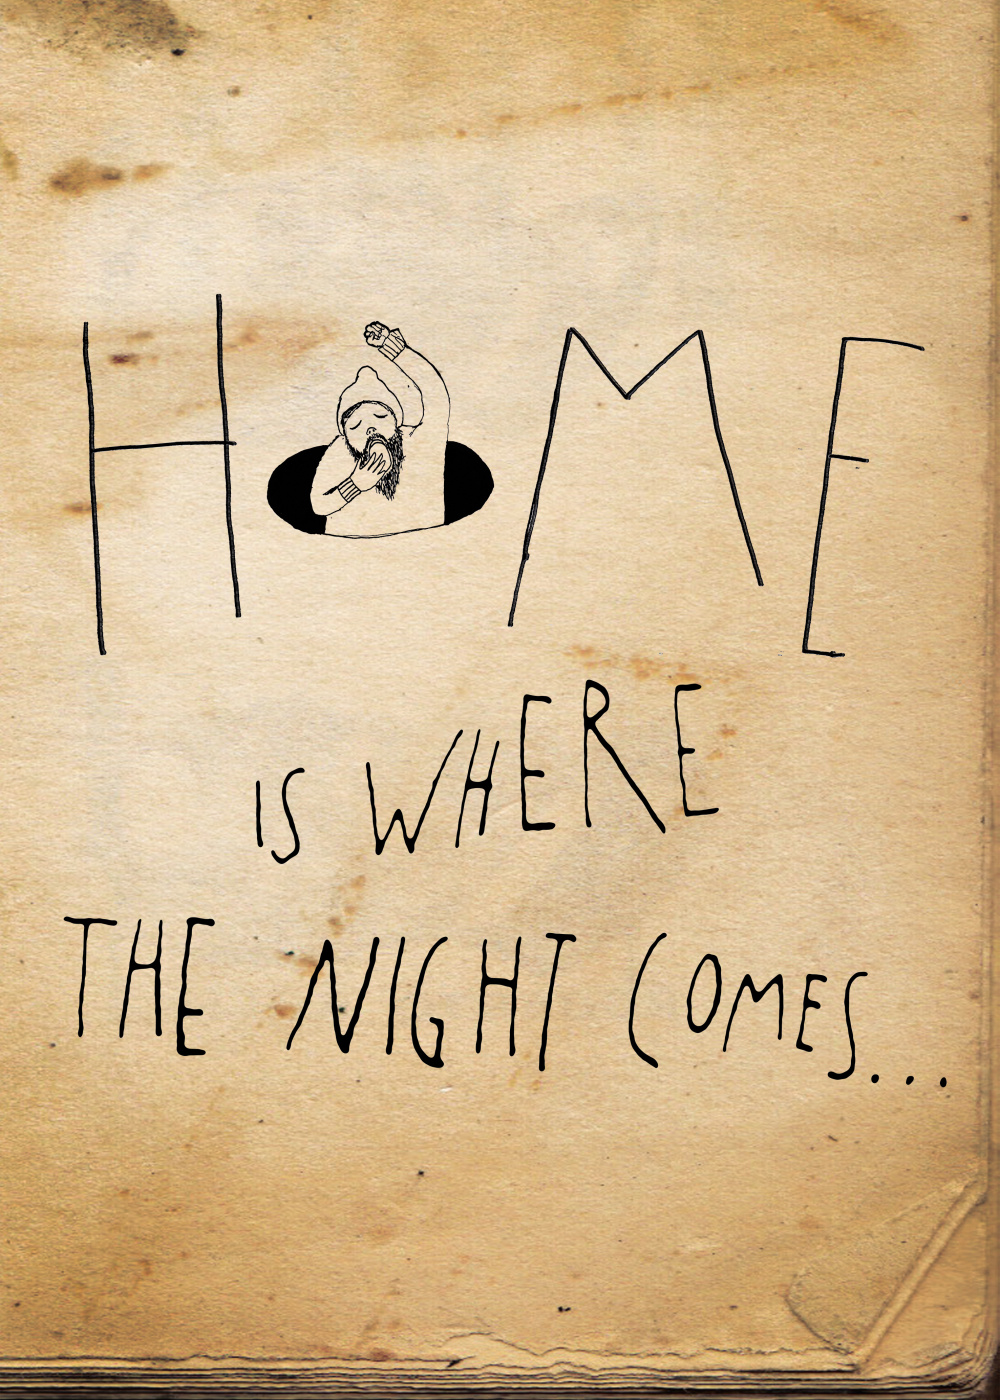 HOME
IS WHERE
THE NIGHT COMES...